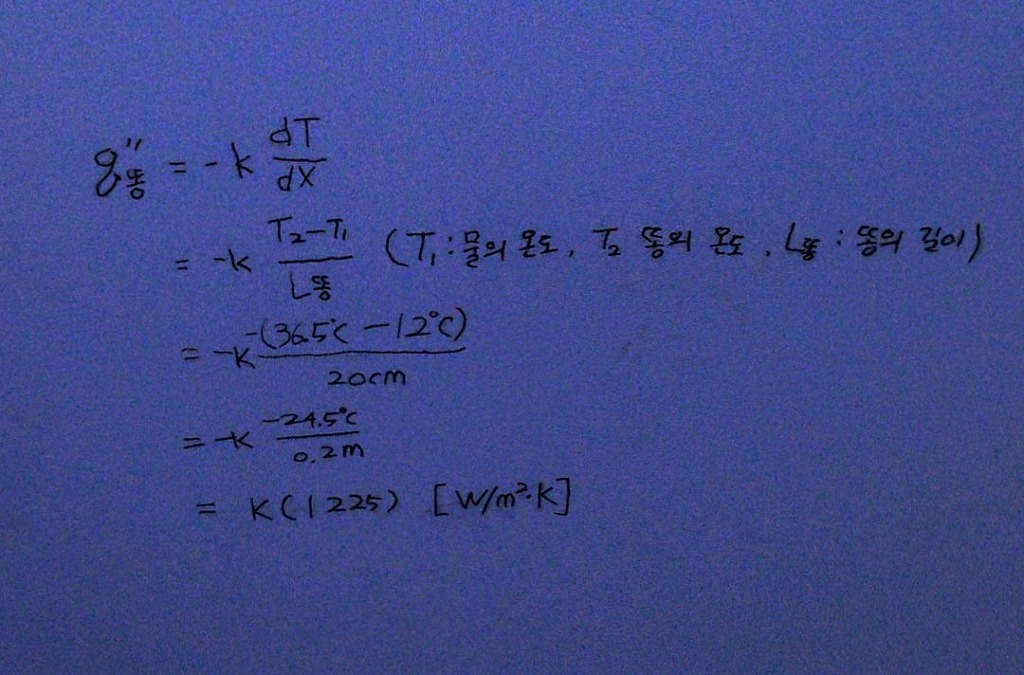 q″똥 = -k dT/dX
= -k T₂-T₁/L똥 (T₁:물의 온도, T₂ 똥의 온도, L똥 : 똥의 길이)
= -k -(36.5℃ -12℃)/20cm
= -k -24.5℃/0.2m
= K(1225) [W/m²·K]